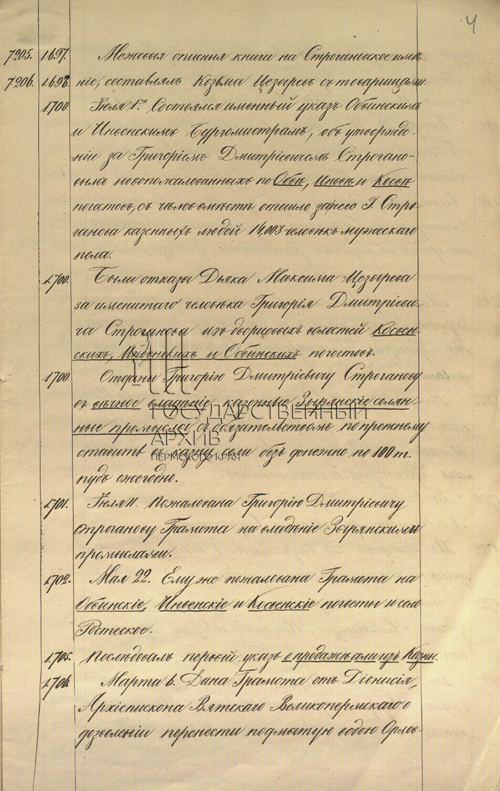 4
7205. 1697. Межевыя описныя книги на Строгановское имѣ-
7206. 1698. ніе, составлялъ Козьма Цезыревъ съ товарищами
1700 Іюля 1го Состоялся именный указъ Обвинскимъ
и Иньвенскимъ Бургомистрамъ, объ утвержде-
ніи за Григоріемъ Дмитріевичемъ Строгано-
вымъ новопожалованныхъ по Обвѣ, Иньвѣ и Косвѣ
погостовъ, съ чѣмъ вмѣстѣ отошло за него Г. Стро-
ганова казенныхъ людей 14,003 человѣкъ мужескаго
пола.
1700. Были отказы Дьяка Максима Цезырева
за именитаго человѣка Григорія Дмитріеви-
ча Строганова изъ дворцовыхъ волостей Косвен-
скихъ, Иньвенскихъ и Обвинскихъ погостовъ.
1700. Отданы Григорію Дмитріевичу Строганову
въ вѣчное владѣніе казенные Зырянскіе солян-
ные промыслы съ обязательствомъ по прежнему
ставить въ казну соли безъ денежно по 100 т.
пудъ ежегодно.
1701. Іюля 11. Пожалована Григорію Дмитріевичу
Строганову Грамота на владѣніе Зырянскими
промыслами.
1702. Мая 22. Ему же пожалована Грамота на
Обвинскіе, Иньвенскіе и Косвенскіе погосты и село
Ростесское.
1705. Послѣдовалъ первый указъ о продажѣ соли изъ Казны.
1706. Марта 6. Дана Грамота отъ Діонисія,
Архіепископа Вятскаго Великопермскаго о
дозволеніи перенести подмытую водою Орлов-
ГОСУДАРСТВЕННЫЙ
АРХИВ
ПЕРМСКОГО КРАЯ